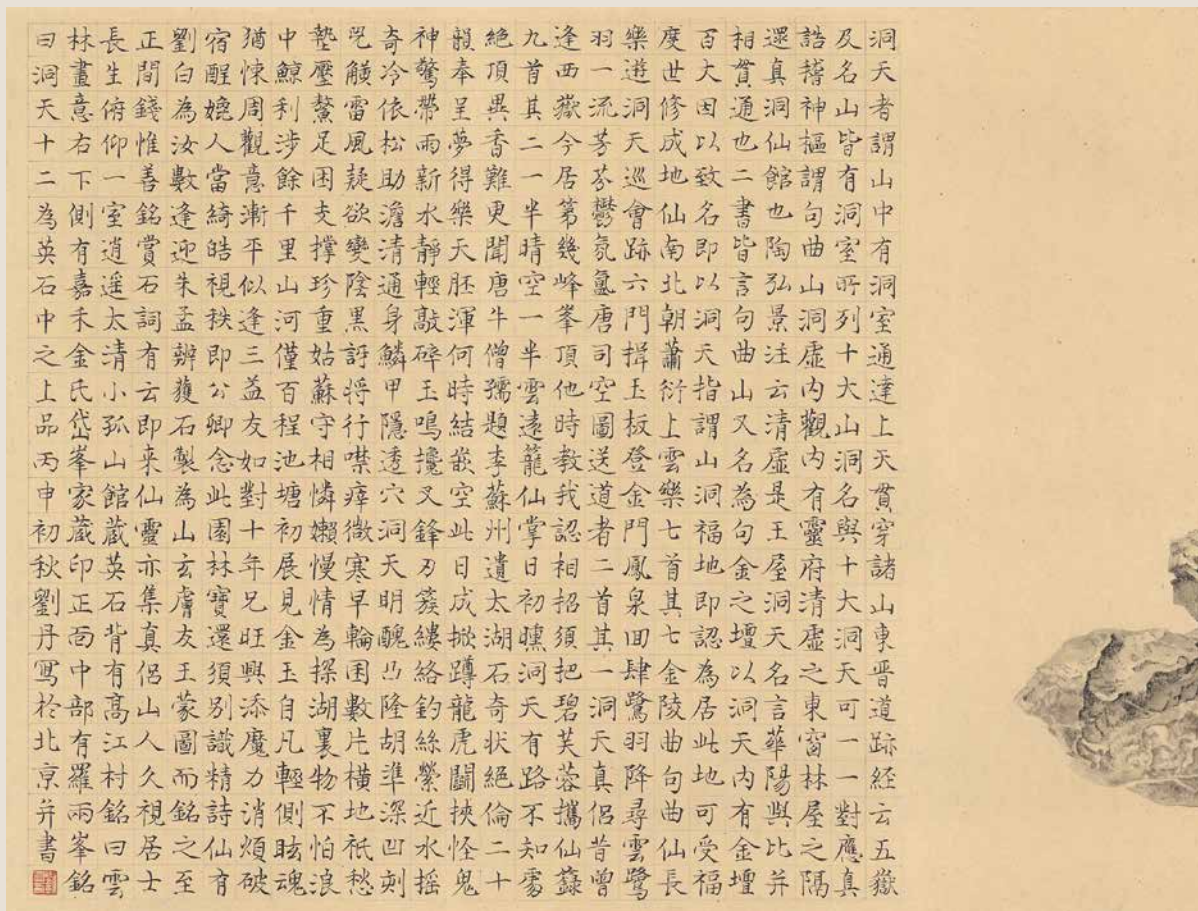 洞天者謂山中有洞室通達上天貫穿諸山東晉道跡経云五嶽
及名山皆有洞室所列十大山洞名與十大洞天可一一對應真
誥稽神樞謂句曲山洞虛內觀內有靈府清虛之東窗林屋之隔
還真洞仙館也陶弘景注云清虛是王屋洞天名言華陽與比并
相貫通也二書皆言句曲山又名為句金之壇以洞天內有金壇
百大因以致名即以洞天指謂山洞福地即認為居此地可受福
度世修成地仙南北朝蕭衍上雲樂七首其七金陵曲句曲仙長
樂遊洞天巡會跡六門揖玉板登金門鳳泉回肆鷺羽降尋雲鷺
羽一流芳芬鬱氛氳唐司空圖送道者二首其一洞天真侶昔曾
逢西嶽今居第幾峰峯頂他時教我認相招須把碧芙蓉攜仙籙
九首其二一半晴空一半雲遠籠仙掌日初曛洞天有路不知處
絕頂異香難更聞唐牛僧孺題李蘇州遺太湖石奇狀絕倫二十
韻奉呈夢得樂天胚渾何時結嵌空此日成掀蹲龍虎鬭挾怪鬼
神驚帶雨新水靜輕敲碎玉鳴攙叉鋒刃簇縷絡釣絲縈近水搖
奇冷依松助澹清通身鱗甲隱透穴洞天明醜凸隆胡準深凹刻
兕觥雷風疑欲變陰黑訝将行噤痒微寒早輪囷數片橫地祇愁
墊壓鰲足困支撐珍重姑蘇守相憐懶慢情為探湖裏物不怕浪
中鯨利涉餘千里山河僅百程池塘初展見金玉自凡輕側眩魂
猶悚周觀意漸平似逢三益友如對十年兄旺興添魔力消煩破
宿醒媲人當綺皓視秩即公卿念此園林寶還須別識精詩仙有
劉白為汝數逢迎朱孟辨獲石製為山玄膚友王蒙圖而銘之至
正間錢惟善銘賞石詞有云即来仙靈亦集真侶山人久視居士
長生俯仰一室逍遥太清小孤山館藏英石背有高江村銘曰雲
林畫意右下側有嘉禾金氏岱峯家藏印正面中部有羅雨峯銘
曰洞天十二為英石中之上品丙申初秋劉丹寫於北京并書